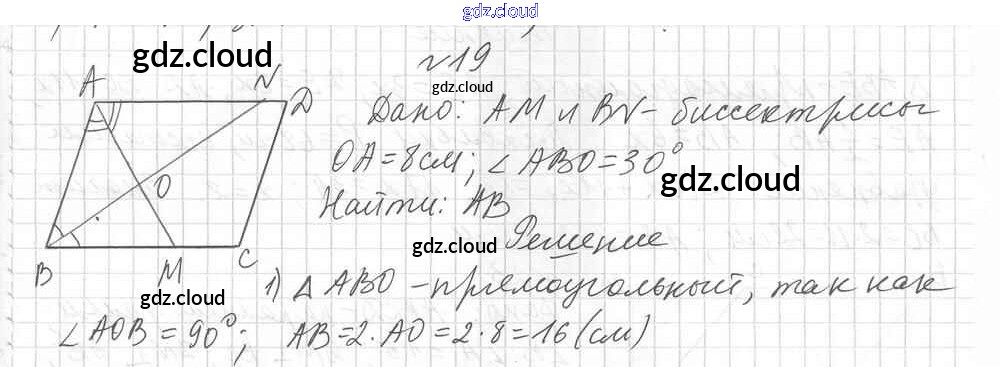 gdz.cloud
gdz.cloud
№19
gdz.cloud
A
N
D
Дано: AM и BN - биссектрисы
OA = 8 см; ∠ABO = 30°
gdz.cloud
O
Найти: AB
gdz.cloud
Решение
B
M
C
1) △ABO - прямоугольный, так как
gdz.cloud
∠AOB = 90°; AB = 2·AO = 2·8 = 16 (см)
gdz.cloud